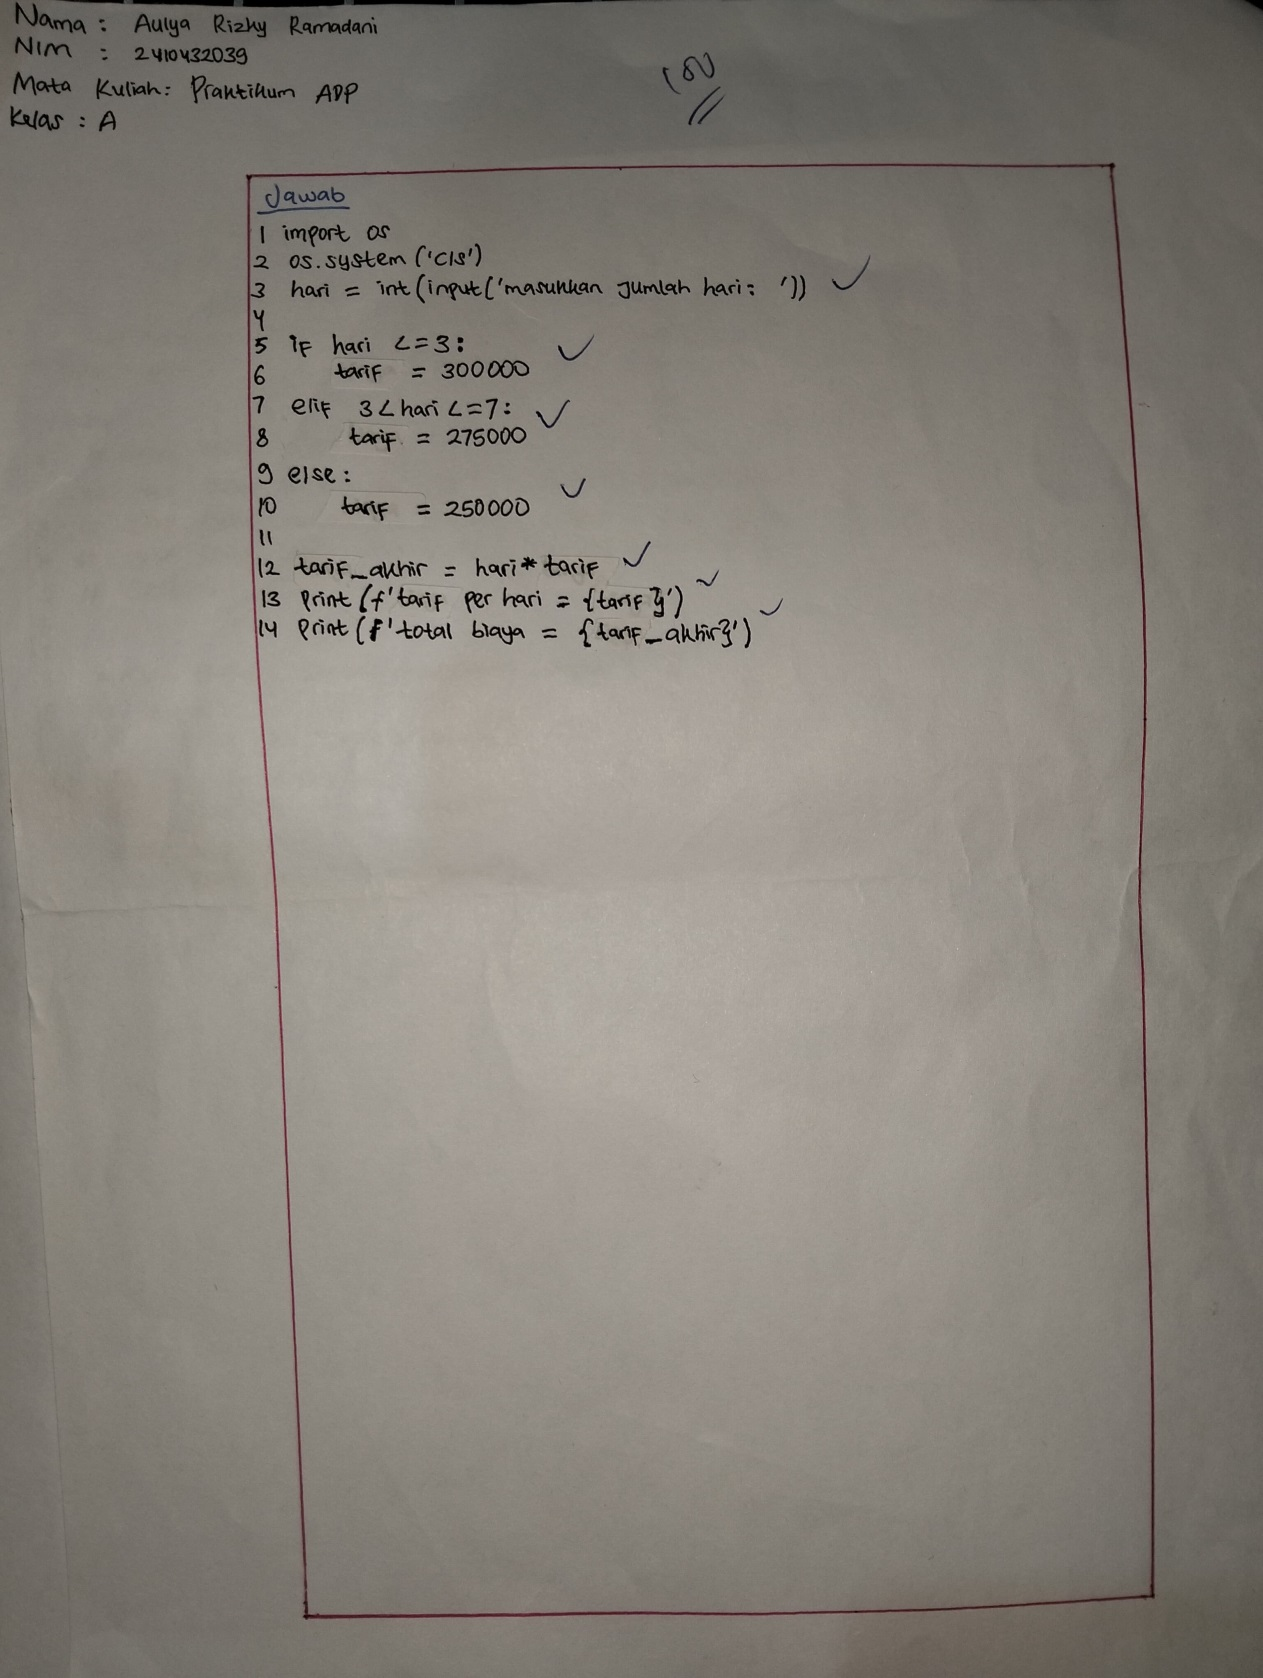 Nama : Aulya Rizky Ramadani
NIM : 2410432039
Mata Kuliah: Praktikum ADP
Kelas : A
100
Jawab
1 import os
2 os.system('cls')
3 hari = int(input('masukkan jumlah hari: '))
4
5 if hari <=3:
6 tarif = 300000
7 elif 3<hari<=7:
8 tarif = 275000
9 else:
10 tarif = 250000
11
12 tarif_akhir = hari*tarif
13 print(f'tarif per hari = {tarif}')
14 print(f'total biaya = {tarif_akhir}')